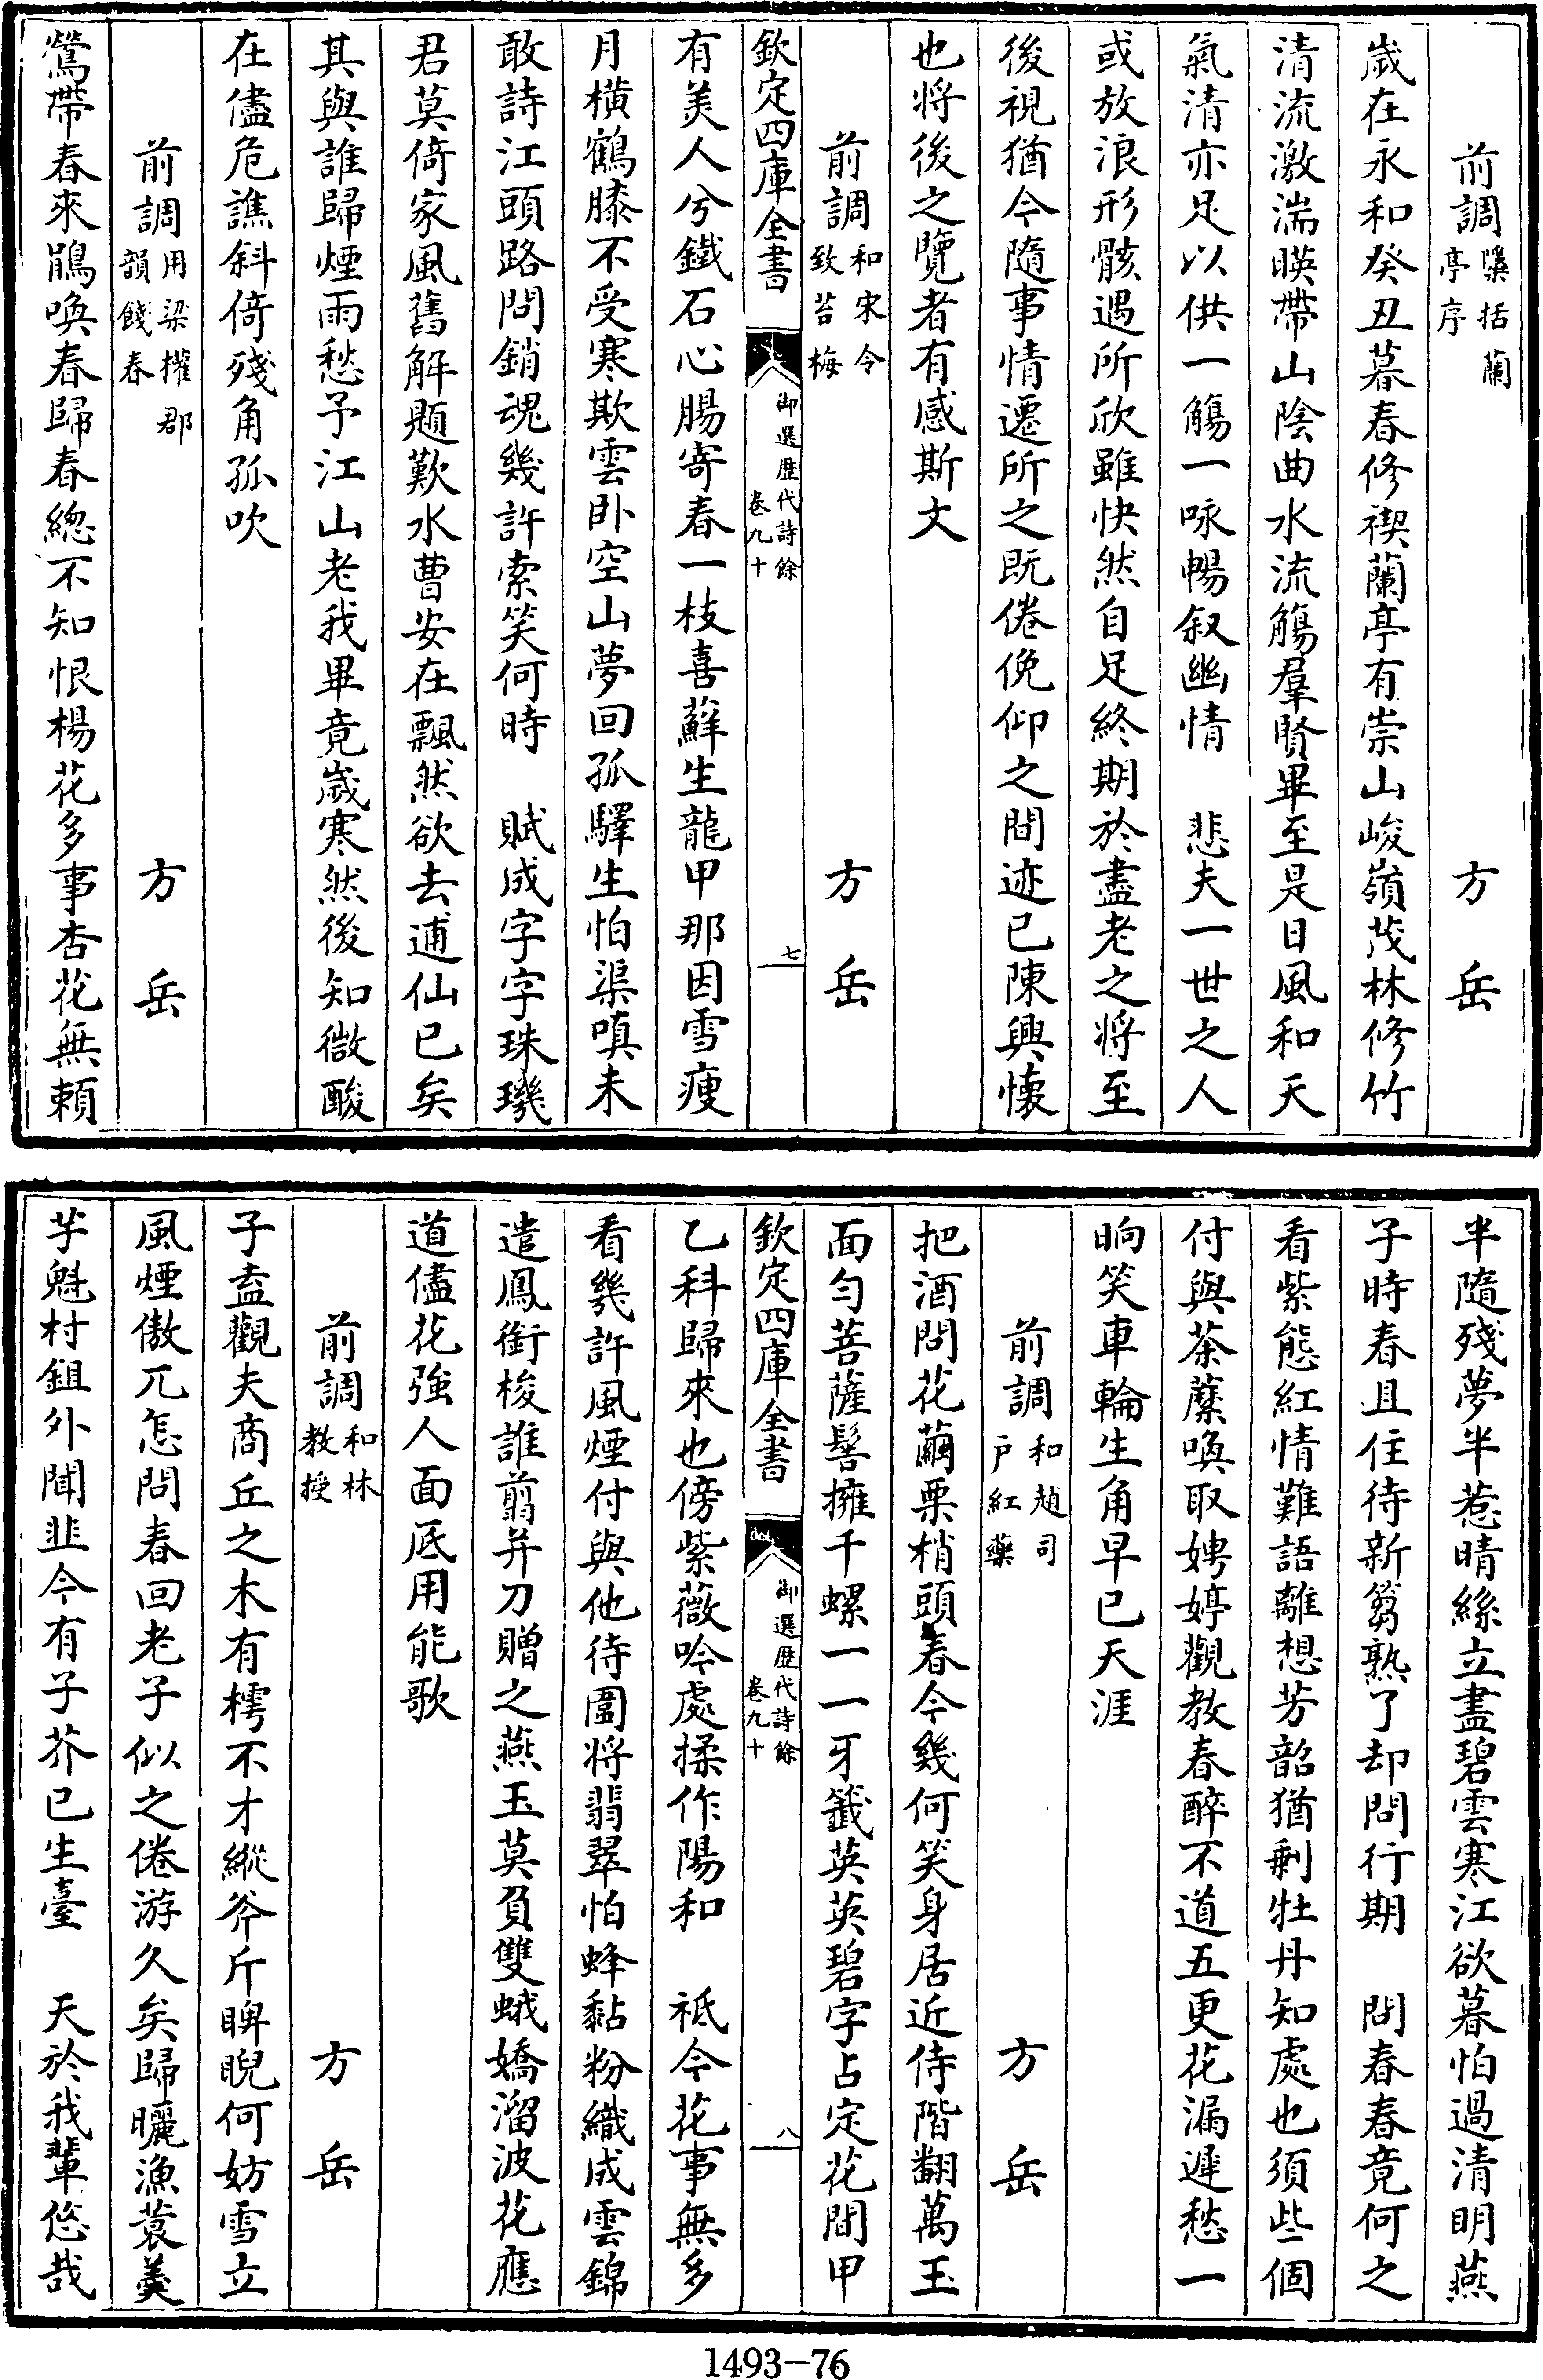 前調櫽括蘭亭序　方岳
歲在永和癸丑暮春修禊蘭亭有崇山峻嶺茂林修竹
清流激湍暎帶山陰曲水流觴羣賢畢至是日風和天
氣清亦足以供一觴一咏暢叙幽情　悲夫一世之人
或放浪形骸遇所欣雖快然自足終期於盡老之將至
後視猶今隨事情遷所之既倦俛仰之間迹已陳興懷
也將後之覽者有感斯文
前調和宋令致苔梅　方岳
欽定四庫全書　御選歷代詩餘卷九十　七
有美人兮鐵石心腸寄春一枝喜蘚生龍甲那因雪瘦
月橫鶴膝不受寒欺雲卧空山夢回孤驛生怕渠嗔未
敢詩江頭路問銷魂幾許索笑何時　賦成字字珠璣
君莫倚家風舊解題歎水曹安在飄然欲去逋仙已矣
其與誰歸煙雨愁予江山老我畢竟歲寒然後知微酸
在儘危譙斜倚殘角孤吹
前調用梁權郡韻餞春　方岳
鶯帶春來鵑喚春歸春總不知恨楊花多事杏花無賴
半隨殘夢半惹晴絲立盡碧雲寒江欲暮怕過清明燕
子時春且住待新篘熟了却問行期　問春春竟何之
看紫態紅情難語離想芳韶猶剩牡丹知處也須些個
付與荼䕷喚取娉婷觀教春醉不道五更花漏遲愁一
晌笑車輪生角早已天涯
前調和趙司户紅藥　方岳
把酒問花繭栗梢頭春今幾何笑身居近侍階翻萬玉
面勻菩薩髻擁千螺一一牙籤英英碧字占定花間甲
欽定四庫全書　御選歷代詩餘卷九十　八
乙科歸來也傍紫薇吟處揉作陽和　祗今花事無多
看幾許風煙付與他待圍將翡翠怕蜂黏粉織成雲錦
遣鳳銜梭誰翦并刀贈之燕玉莫負雙蛾嬌溜波花應
道儘花強人面底用能歌
前調和林教授　方岳
子盍觀夫商丘之木有樗不才縱斧斤睥睨何妨雪立
風煙傲兀怎問春回老子似之倦游久矣歸曬漁蓑羹
芋魁村鉏外聞韭今有子芥已生臺　天於我輩悠哉
1493-76